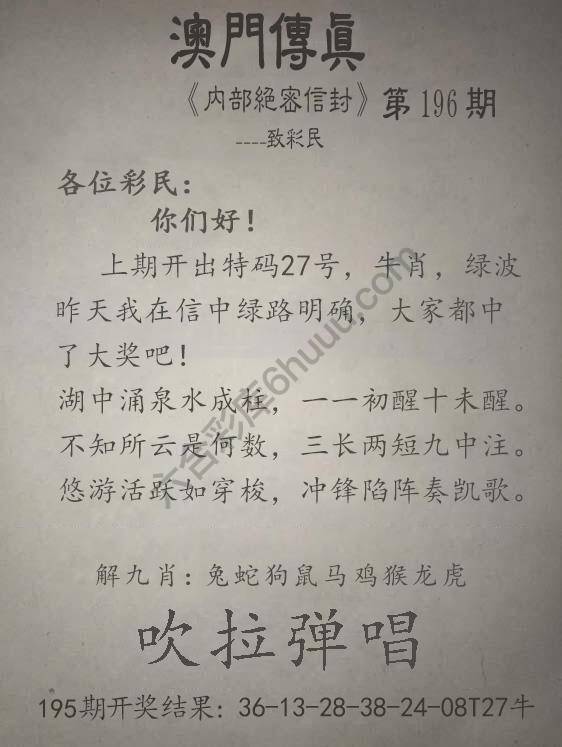 澳門傳眞
《内部絕密信封》第196期
----致彩民
各位彩民：
你们好！
上期开出特码27号，牛肖，绿波
昨天我在信中绿路明确，大家都中
了大奖吧！
湖中涌泉水成柱，一一初醒十未醒。
不知所云是何数，三长两短九中注。
悠游活跃如穿梭，冲锋陷阵奏凯歌。
六合彩库6huuu.com
解九肖：兔蛇狗鼠马鸡猴龙虎
吹拉弹唱
195期开奖结果：36-13-28-38-24-08T27牛